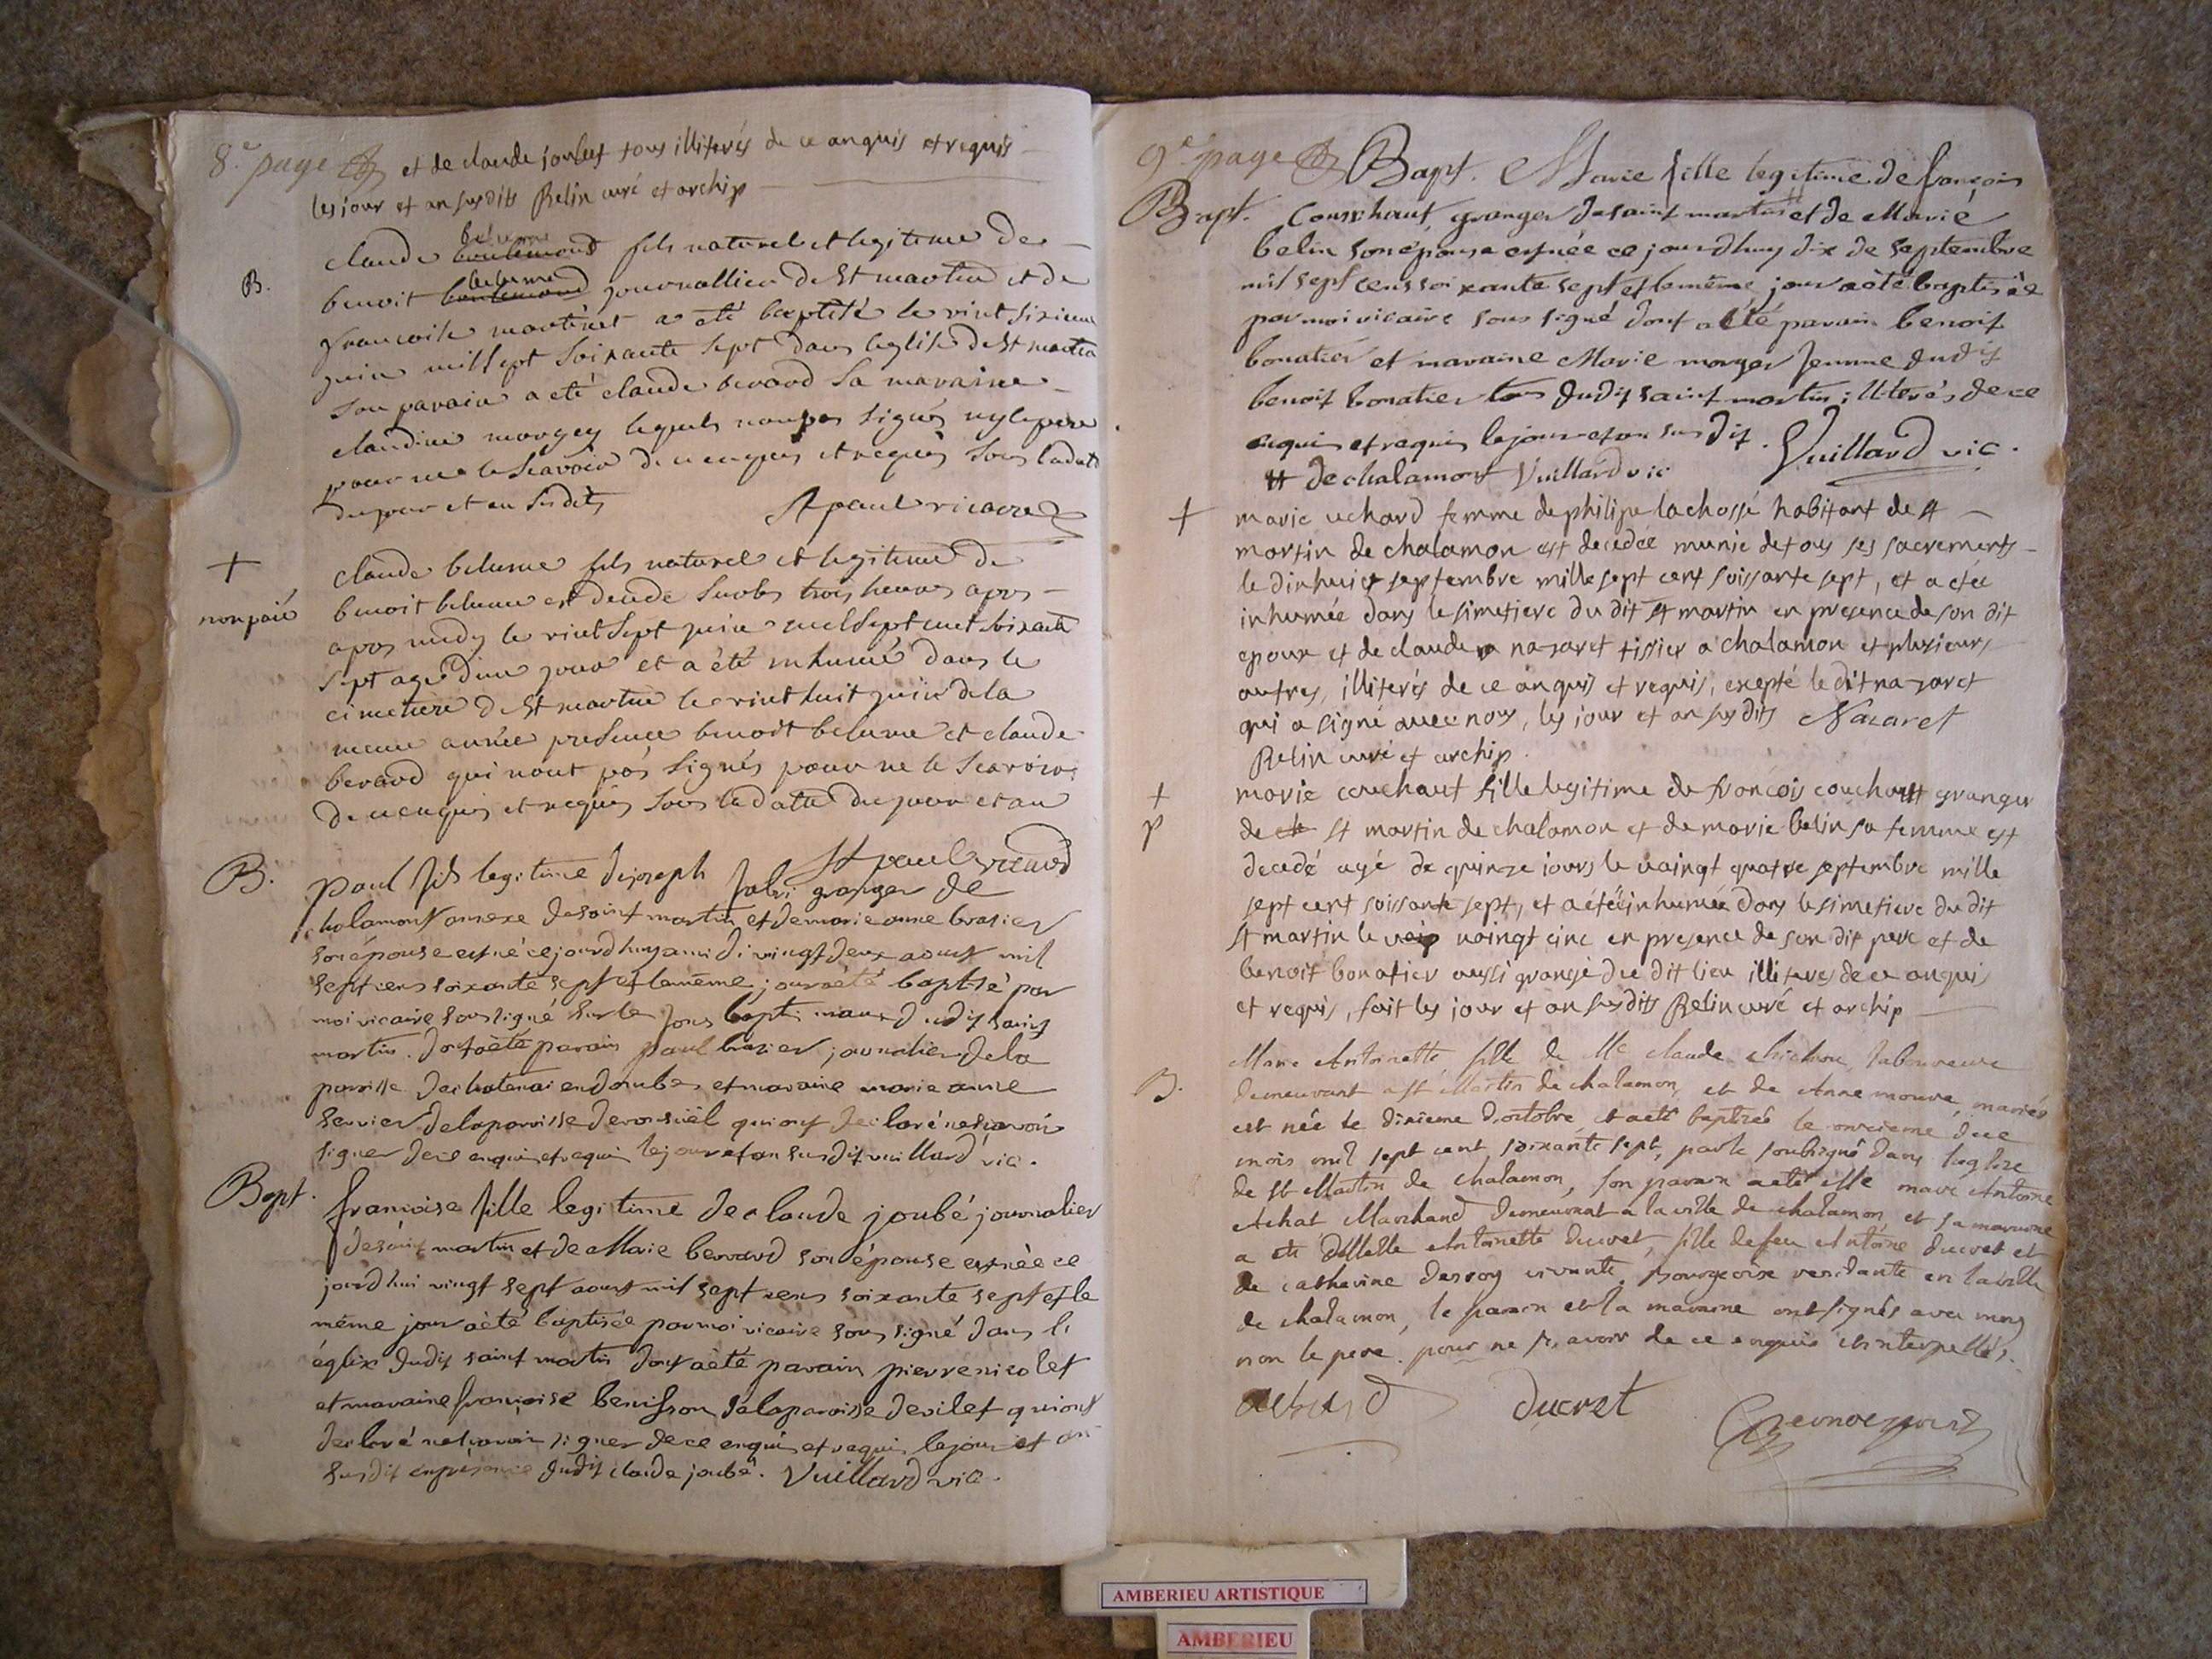 8.e page et de claude joubet tous illiterés de ce anquis et requis
les jour et an susdits Relin curé et archip
B.
claude belume fils naturel et legitime de
benoit journallier de St martin et de
francoise martinet a eté baptisé le vint sixieme
juin mil sept soixante sept dans leglise de St martin
son parain a eté claude berard sa maraine
claudine morgey lequels nonpas signés ny le pere
pour ne le scavoir de ce enquis et requis sous la date
du jour et an susdits
St paul vicaire
+
non paié
claude belume fils naturel et legitime de
benoit belume est decedé sur les trois heures apres
apres midy le vint sept juin mil sept cent soixante
sept agé dun jour et a été inhumé dans le
cimetiere de St martin le vint huit juin de la
meme année presence benoit belume et claude
berard qui nont pas signés pour ne le scavoir
de ce enquis et requis sous la date du jour et an
St paul vicaire
B.
paul fils legitime de joseph granger de
chalamont annexe de saint martin et de marie anne brasier
son épouse est né ce jourdhuy a midi vingt deux aoust mil
sept cens soixante sept et le même jour a été baptisé par
moi vicaire sous signé sur les fons baptismaux dudit saint
martin dont a été parain paul brasier journalier de la
paroisse de chatenai en dombes et maraine marie anne
servier de la paroisse de qui ont declaré ne scavoir
signer de ce enquis et requis le jour et an susdit vuillard vic.
Bapt.
francoise fille legitime de claude joubé journalier
de saint martin et de Marie berrard son épouse est née ce
jourdhui vingt sept aoust mil sept cens soixante sept et le
même jour a été baptisée par moi vicaire sous signé dans l
église dudit saint martin dont a été parain pierre nicolet
et maraine francoise de la paroisse de vilet qui ont
declaré ne scavoir signer de ce enquis et requis le jour et an
susdit en presence dudit claude joubé. Vuillard vic.
9e page Bapt. Marie fille legitime de françois
Bapt. Couchaut, granger de saint martin # et de Marie
belin son épouse est née ce jourdhuy dix de septembre
mil sept cens soixante sept et le même jour a été baptisée
par moi vicaire sous signé dont a été parain benoit
bonatier et maraine Marie morger femme dudit
benoit bonatier tous dudit saint martin illiterés de ce
enquis et requis le jour et an sus dit. Vuillard vic.
# de chalamont Vuillard vic
+
marie uchard femme de philipe lachossé habitant de st
martin de chalamon est decedée munie de tous ses sacrements
le dixhuict septembre mille sept cent soissante sept, et a etée
inhumée dans le simetiere du dit st martin en presence de son dit
epoux et de claude nazaret tissier a chalamon et plusieurs
autres, illiterés de ce anquis et requis, excepté le dit nazaret
qui a signé avec nous, les jour et an susdits Nazaret
Relin curé et archip.
+
p
marie couchaut fille legitime de francois couchautt granger
de st martin de chalamon et de marie belin sa femme est
decedé agé de quinze jours le vaingt quatre septembre mille
sept cent soissante sept, et a étée inhumée dans le simetiere du dit
st martin le vaingt cinc en presence de son dit pere et de
benoit bonatier aussi grangé du dit lieu illiteres de ce anquis
et requis, fait les jour et an susdits Relin curé et archip
B.
Marie Antoinette fille de Me claude laboureur
demeurant a St Martin de chalamon, et de Anne mariés
est née le dixieme d'octobre et a eté baptisée le onzieme dud
mois mil sept cent soixante sept, par le soubsigné dans leglise
de St Martin de chalamon, son parain a eté Marc Antoine
Achat Marchand demeurant a la ville de chalamon, et sa maraine
a eté dlle Antoinette ducret, fille de feu Antoine ducret et
de catherine vivante, bourgeoise residante en la ville
de chalamon, le parain et la maraine ont signés avec moy
non le pere pour ne scavoir de ce enquis et interpellés.
ducret
AMBERIEU ARTISTIQUE
AMBERIEU